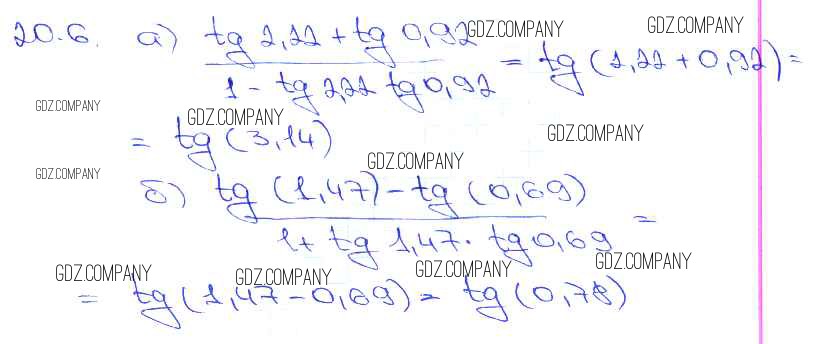 20.6. а) tg 2,22 + tg 0,92 / 1 - tg 2,22 tg 0,92 = tg (2,22 + 0,92) =
= tg (3,14)
б) tg (1,47) - tg (0,69) / 1 + tg 1,47 · tg 0,69 =
= tg (1,47 - 0,69) = tg (0,78)
GDZ.COMPANY
GDZ.COMPANY
GDZ.COMPANY
GDZ.COMPANY
GDZ.COMPANY
GDZ.COMPANY
GDZ.COMPANY
GDZ.COMPANY
GDZ.COMPANY
GDZ.COMPANY
GDZ.COMPANY